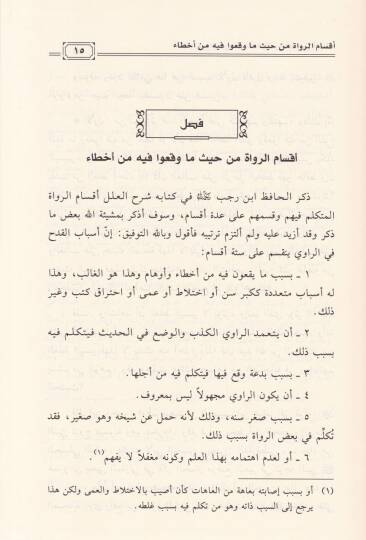 أقسام الرواة من حيث ما وقعوا فيه من أخطاء
١٥
فصل
أقسام الرواة من حيث ما وقعوا فيه من أخطاء
ذكر الحافظ ابن رجب ﷺ في كتابه شرح العلل أقسام الرواة
المتكلم فيهم وقسمهم على عدة أقسام، وسوف أذكر بمشيئة الله بعض ما
ذكر وقد أزيد عليه ولم ألتزم ترتيبه فأقول وبالله التوفيق: إنّ أسباب القدح
في الراوي ينقسم على ستة أقسام:
١ ـ بسبب ما يقعون فيه من أخطاء وأوهام وهذا هو الغالب، وهذا
له أسباب متعددة ككبر سن أو اختلاط أو عمى أو احتراق كتب وغير
ذلك.
٢ ـ أن يتعمد الراوي الكذب والوضع في الحديث فيتكلم فيه
بسبب ذلك.
٣ ـ بسبب بدعة وقع فيها فيتكلم فيه من أجلها.
٤ ـ أن يكون الراوي مجهولاً ليس بمعروف.
٥ ـ بسبب صغر سنه، وذلك لأنه حمل عن شيخه وهو صغير، فقد
تُكلّم في بعض الرواة بسبب ذلك.
٦ ـ أو لعدم اهتمامه بهذا العلم وكونه مغفلاً لا يفهم(١).
(١) أو بسبب إصابته بعاهة من العاهات كأن أصيب بالاختلاط والعمى ولكن هذا
يرجع إلى السبب ذاته وهو من تكلم فيه بسبب غلطه.